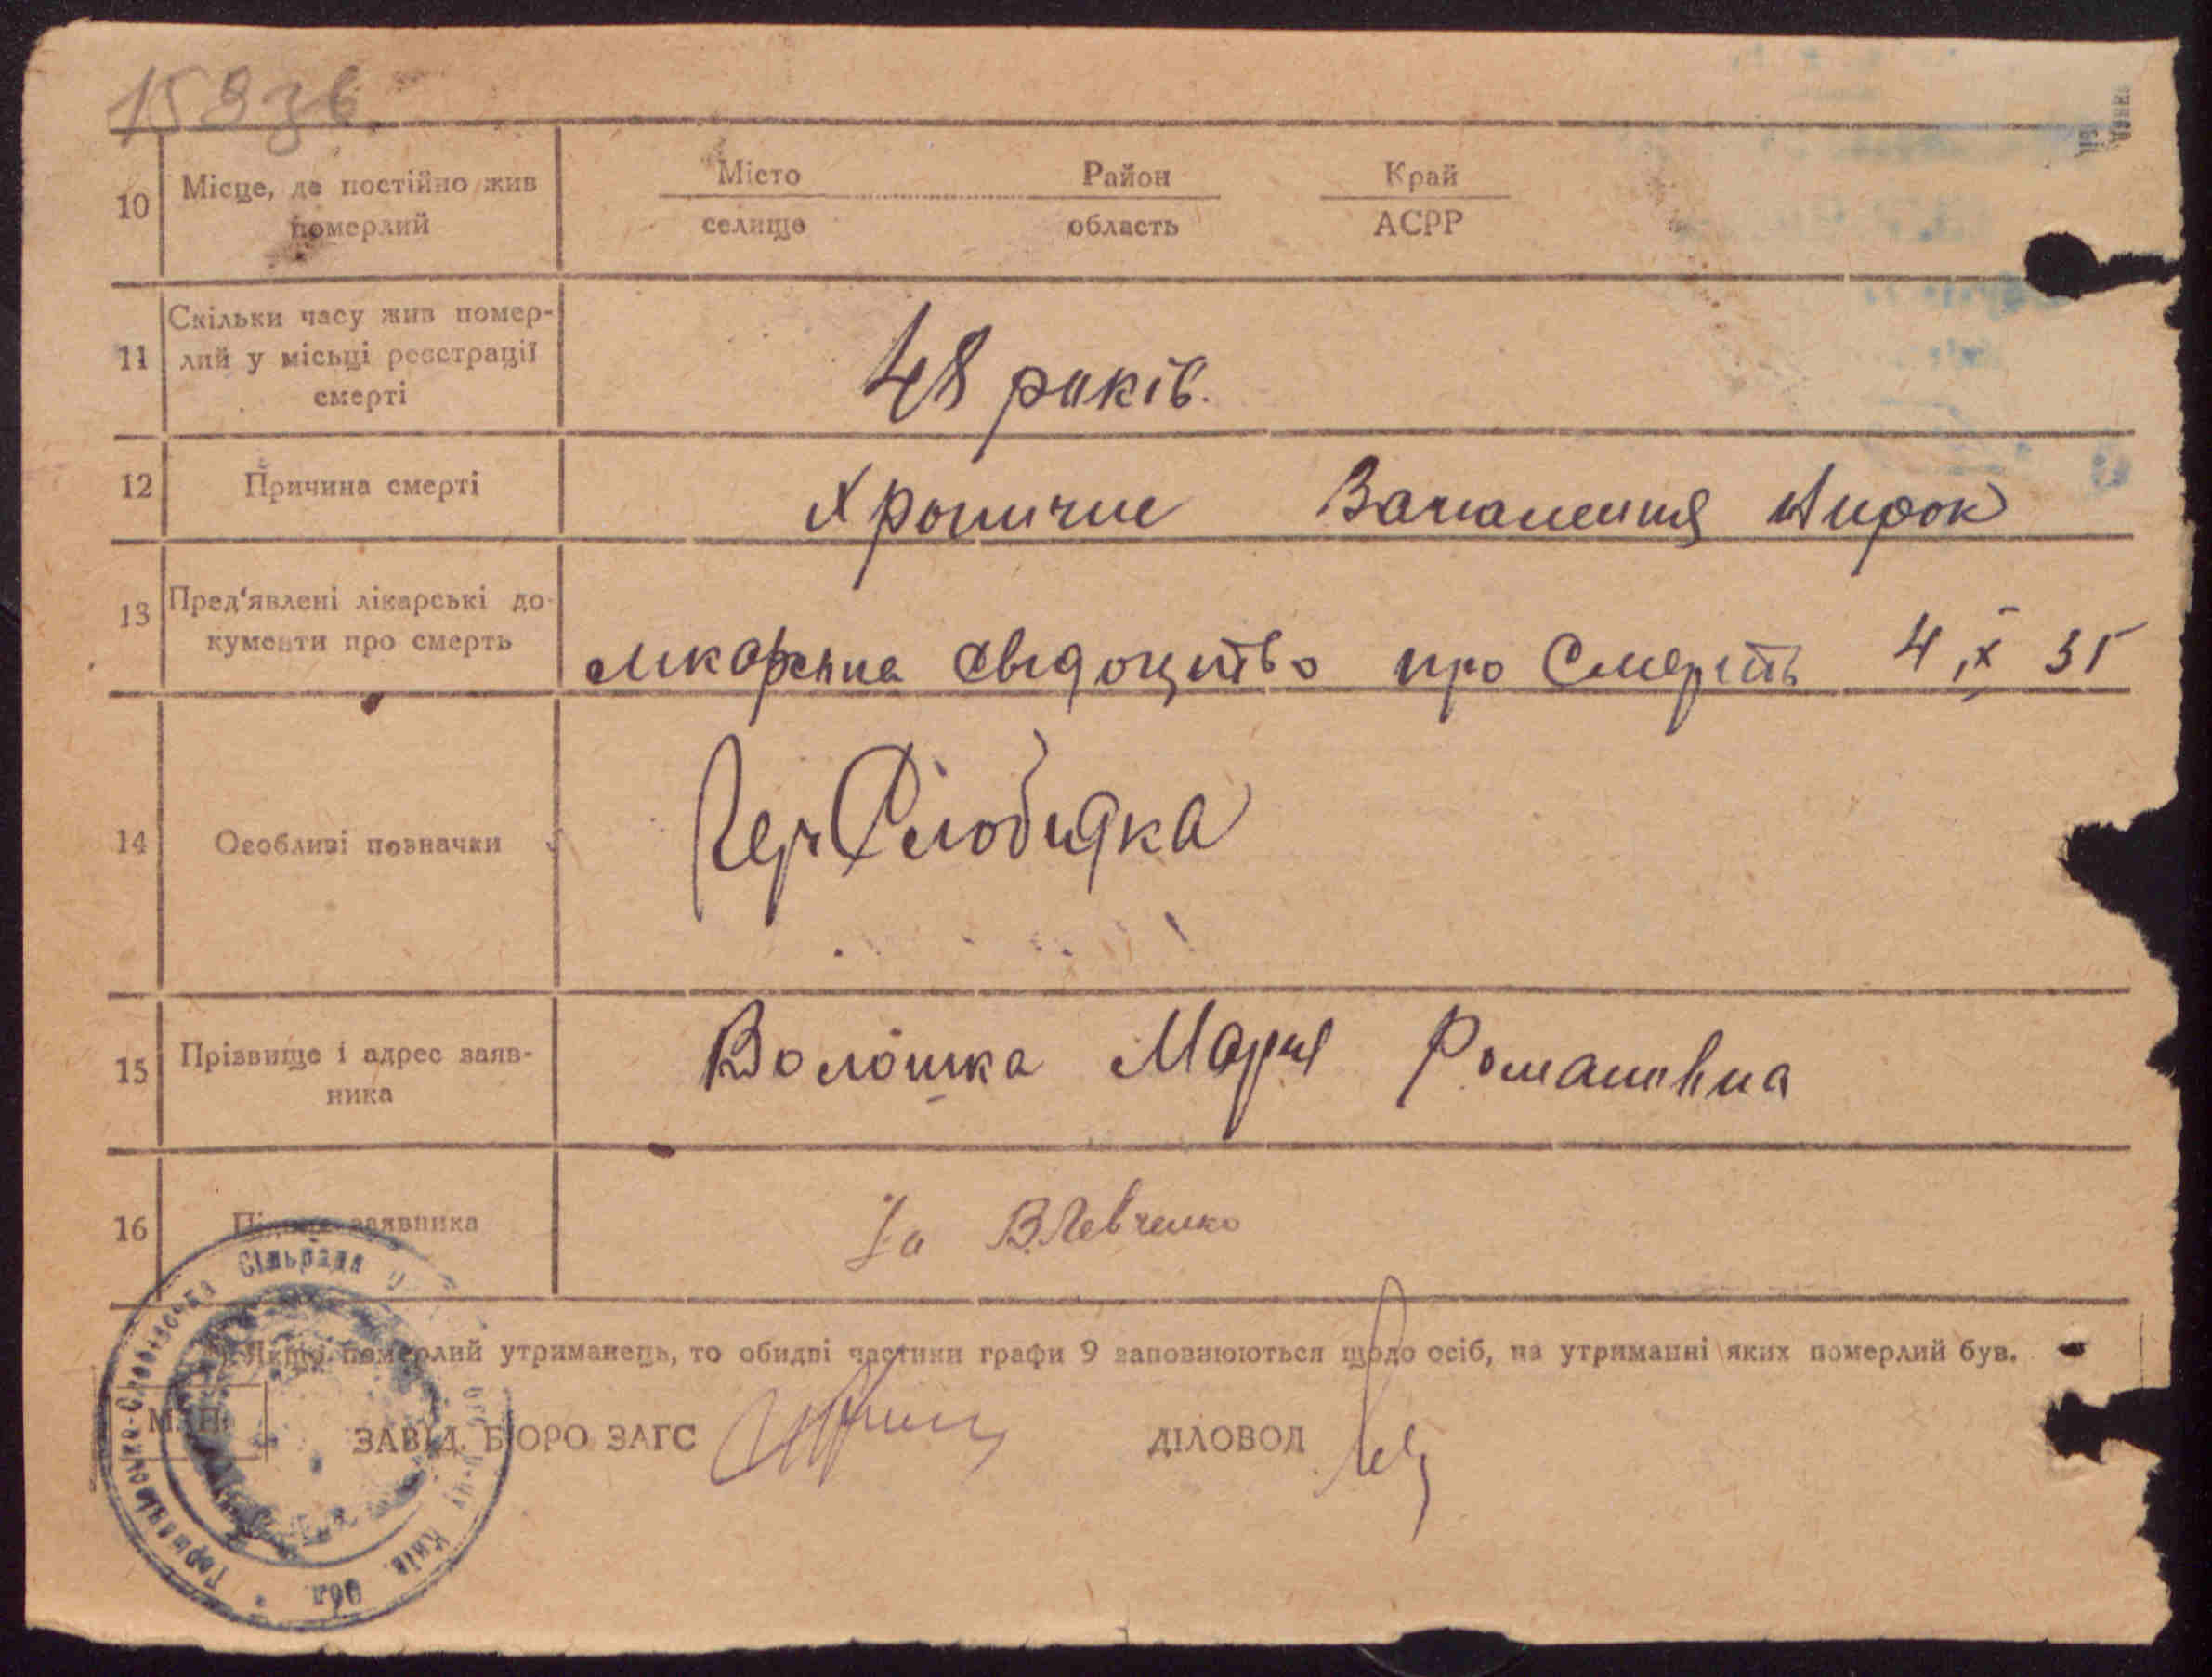 158зв
10 Місце, де постійно жив померлий
Місто Район Край
селище область АСРР
11 Скільки часу жив померлий у місьці реєстрації смерті
48 раків.
12 Причина смерті
Хроничне Запалення Нирок
13 Пред'явлені лікарські документи про смерть
лікарська свідоцтво про Смерть 4 X 35
14 Особливі позначки
Гер Слобидка
15 Прізвище і адрес заявника
Волошка Марія Романовна
16 Підпис заявника
За В.Левченко
Якщо померлий утриманець, то обидві частини графи 9 заповнюються щодо осіб, на утриманні яких померлий був.
М. П.
ЗАВІД. БЮРО ЗАГС ДІЛОВОД
Сільрада
Київ. Обл.